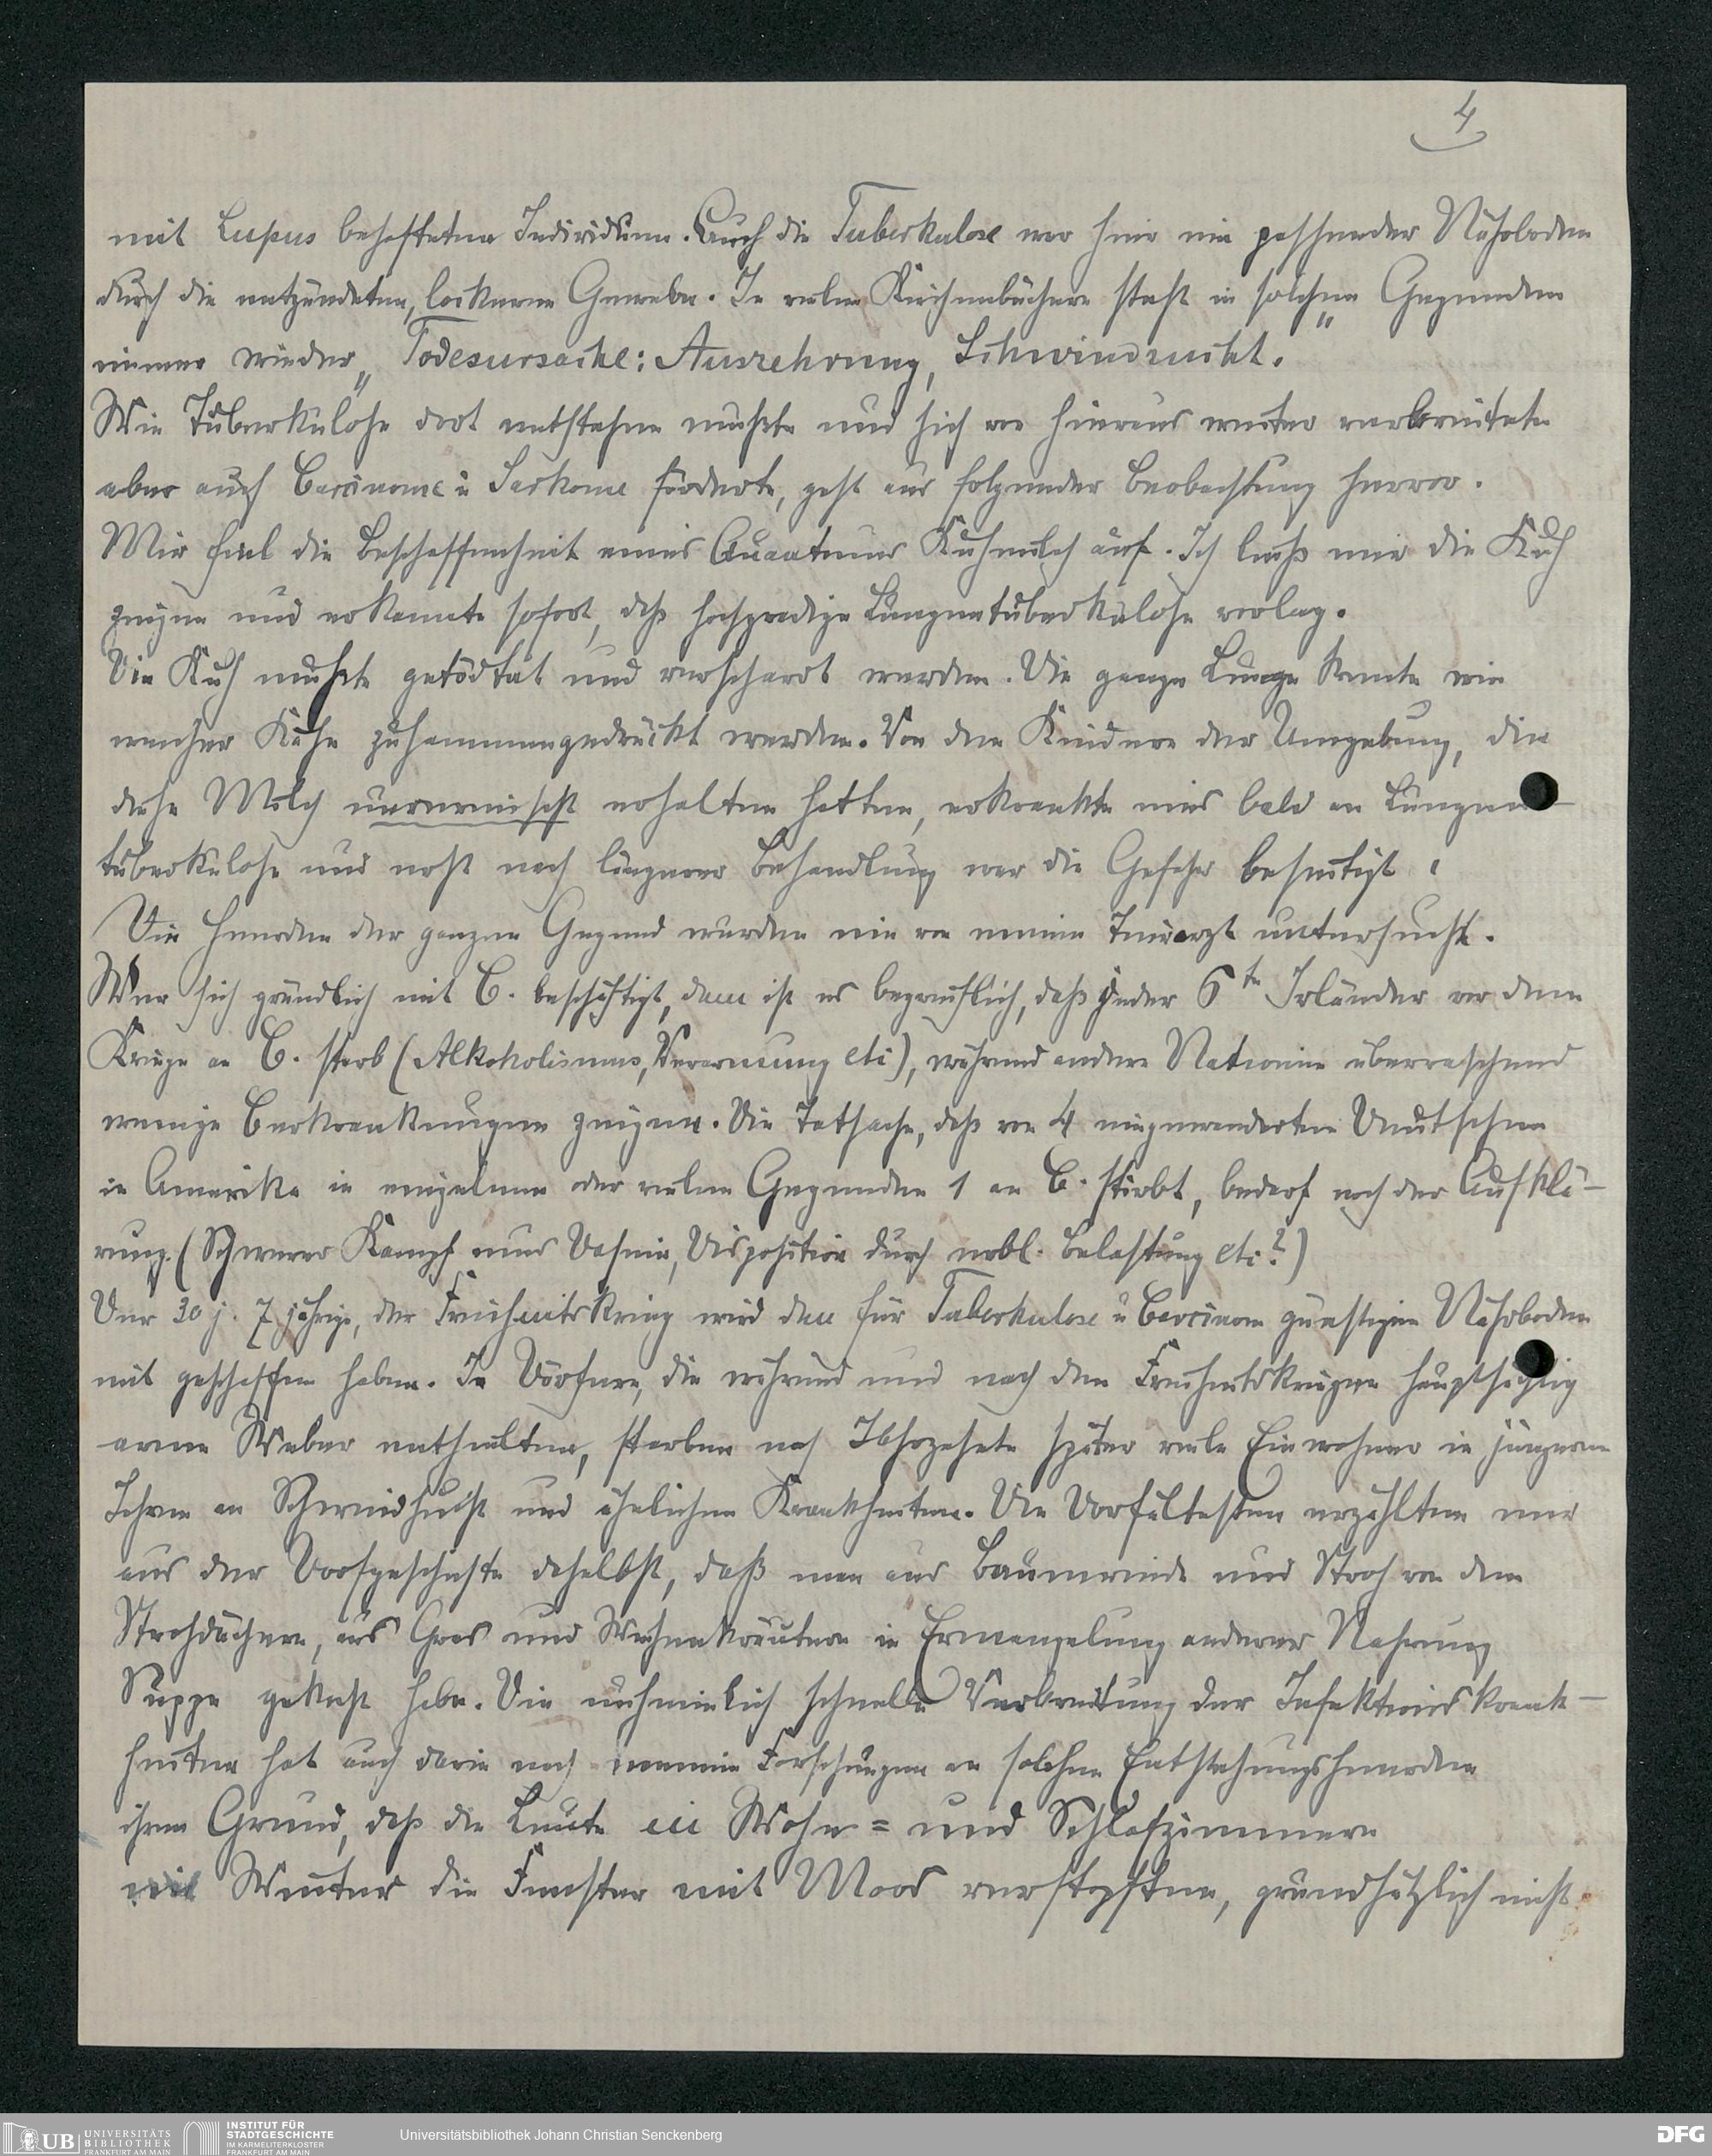 4
mit Lupus behafteten Individuen. Auch die Tuberkulose war hier ein passender Nährboden
durch die entzündeten, lockeren Gewebe. In vielen Kirchenbüchern steht in solchen Gegenden
immer wieder „Todesursache: Auszehrung, Schwindsucht."
Wie Tuberkulose dort entstehen mußte und sich von hieraus weiter verbreitete
aber auch Carcinome u Sarkome förderte, geht aus folgender Beobachtung hervor.
Mir fiel die Beschaffenheit eines Quantums Kuhmilch auf. Ich ließ mir die Kuh
zeigen und erkannte sofort, daß hochgradige Lungentuberkulose vorlag.
Die Kuh mußte getödtet und verscharrt werden. Die ganze Lunge konnte wie
weicher Käse zusammengedrückt werden. Von den Kindern der Umgebung, die
diese Milch unvermischt erhalten hatten, erkrankte eins bald an Lungen-
tuberkulose und erst nach längerer Behandlung war die Gefahr beseitigt.
Die Heerden der ganzen Gegend wurden nie von einem Tierarzt untersucht.
Wer sich gründlich mit C. beschäftigt, dem ist es begreiflich, daß jeder 6te Irländer vor dem
Kriege an C. starb (Alkoholismus, Verarmung etc), während andere Nationen überraschend
wenige Cerkrankungen zeigen. Die Tatsache, daß von 4 eingewanderten Deutschen
in Amerika in einzelnen oder vielen Gegenden 1 an C. stirbt, bedarf noch der Aufklä-
rung. (Schwerer Kampf ums Dasein, Disposition durch erbl. Belastung etc?)
Der 30 j. 7 jährige, der Freiheitskrieg wird den für Tuberkulose u Carcinom günstigen Nährboden
mit geschaffen haben. In Dörfern, die während und nach den Freiheitskriegen hauptsächlig
arme Weber enthielten, starben noch Jahrzehnte später viele Einwohner in jüngeren
Jahren an Schwindsucht und ähnlichen Krankheiten. Die Dorfältesten erzählten mir
aus der Dorfgeschichte daselbst, daß man aus Baumrinde und Stroh von den
Strohdächern, aus Gras und Wiesenkräutern in Ermangelung anderer Nahrung
Suppe gekocht habe. Die unheimlich schnelle Verbreitung der Infektionskrank-
heiten hat auch darin nach meinen Forschungen an solchen Entstehungsheerden
ihren Grund, daß die Leute in Wohn= und Schlafzimmern
Winters die Fenster mit Moos verstopften, grundsätzlich nicht
UB UNIVERSITÄTS
BIBLIOTHEK
FRANKFURT AM MAIN
INSTITUT FÜR
STADTGESCHICHTE
IM KARMELITERKLOSTER
FRANKFURT AM MAIN
Universitätsbibliothek Johann Christian Senckenberg
DFG